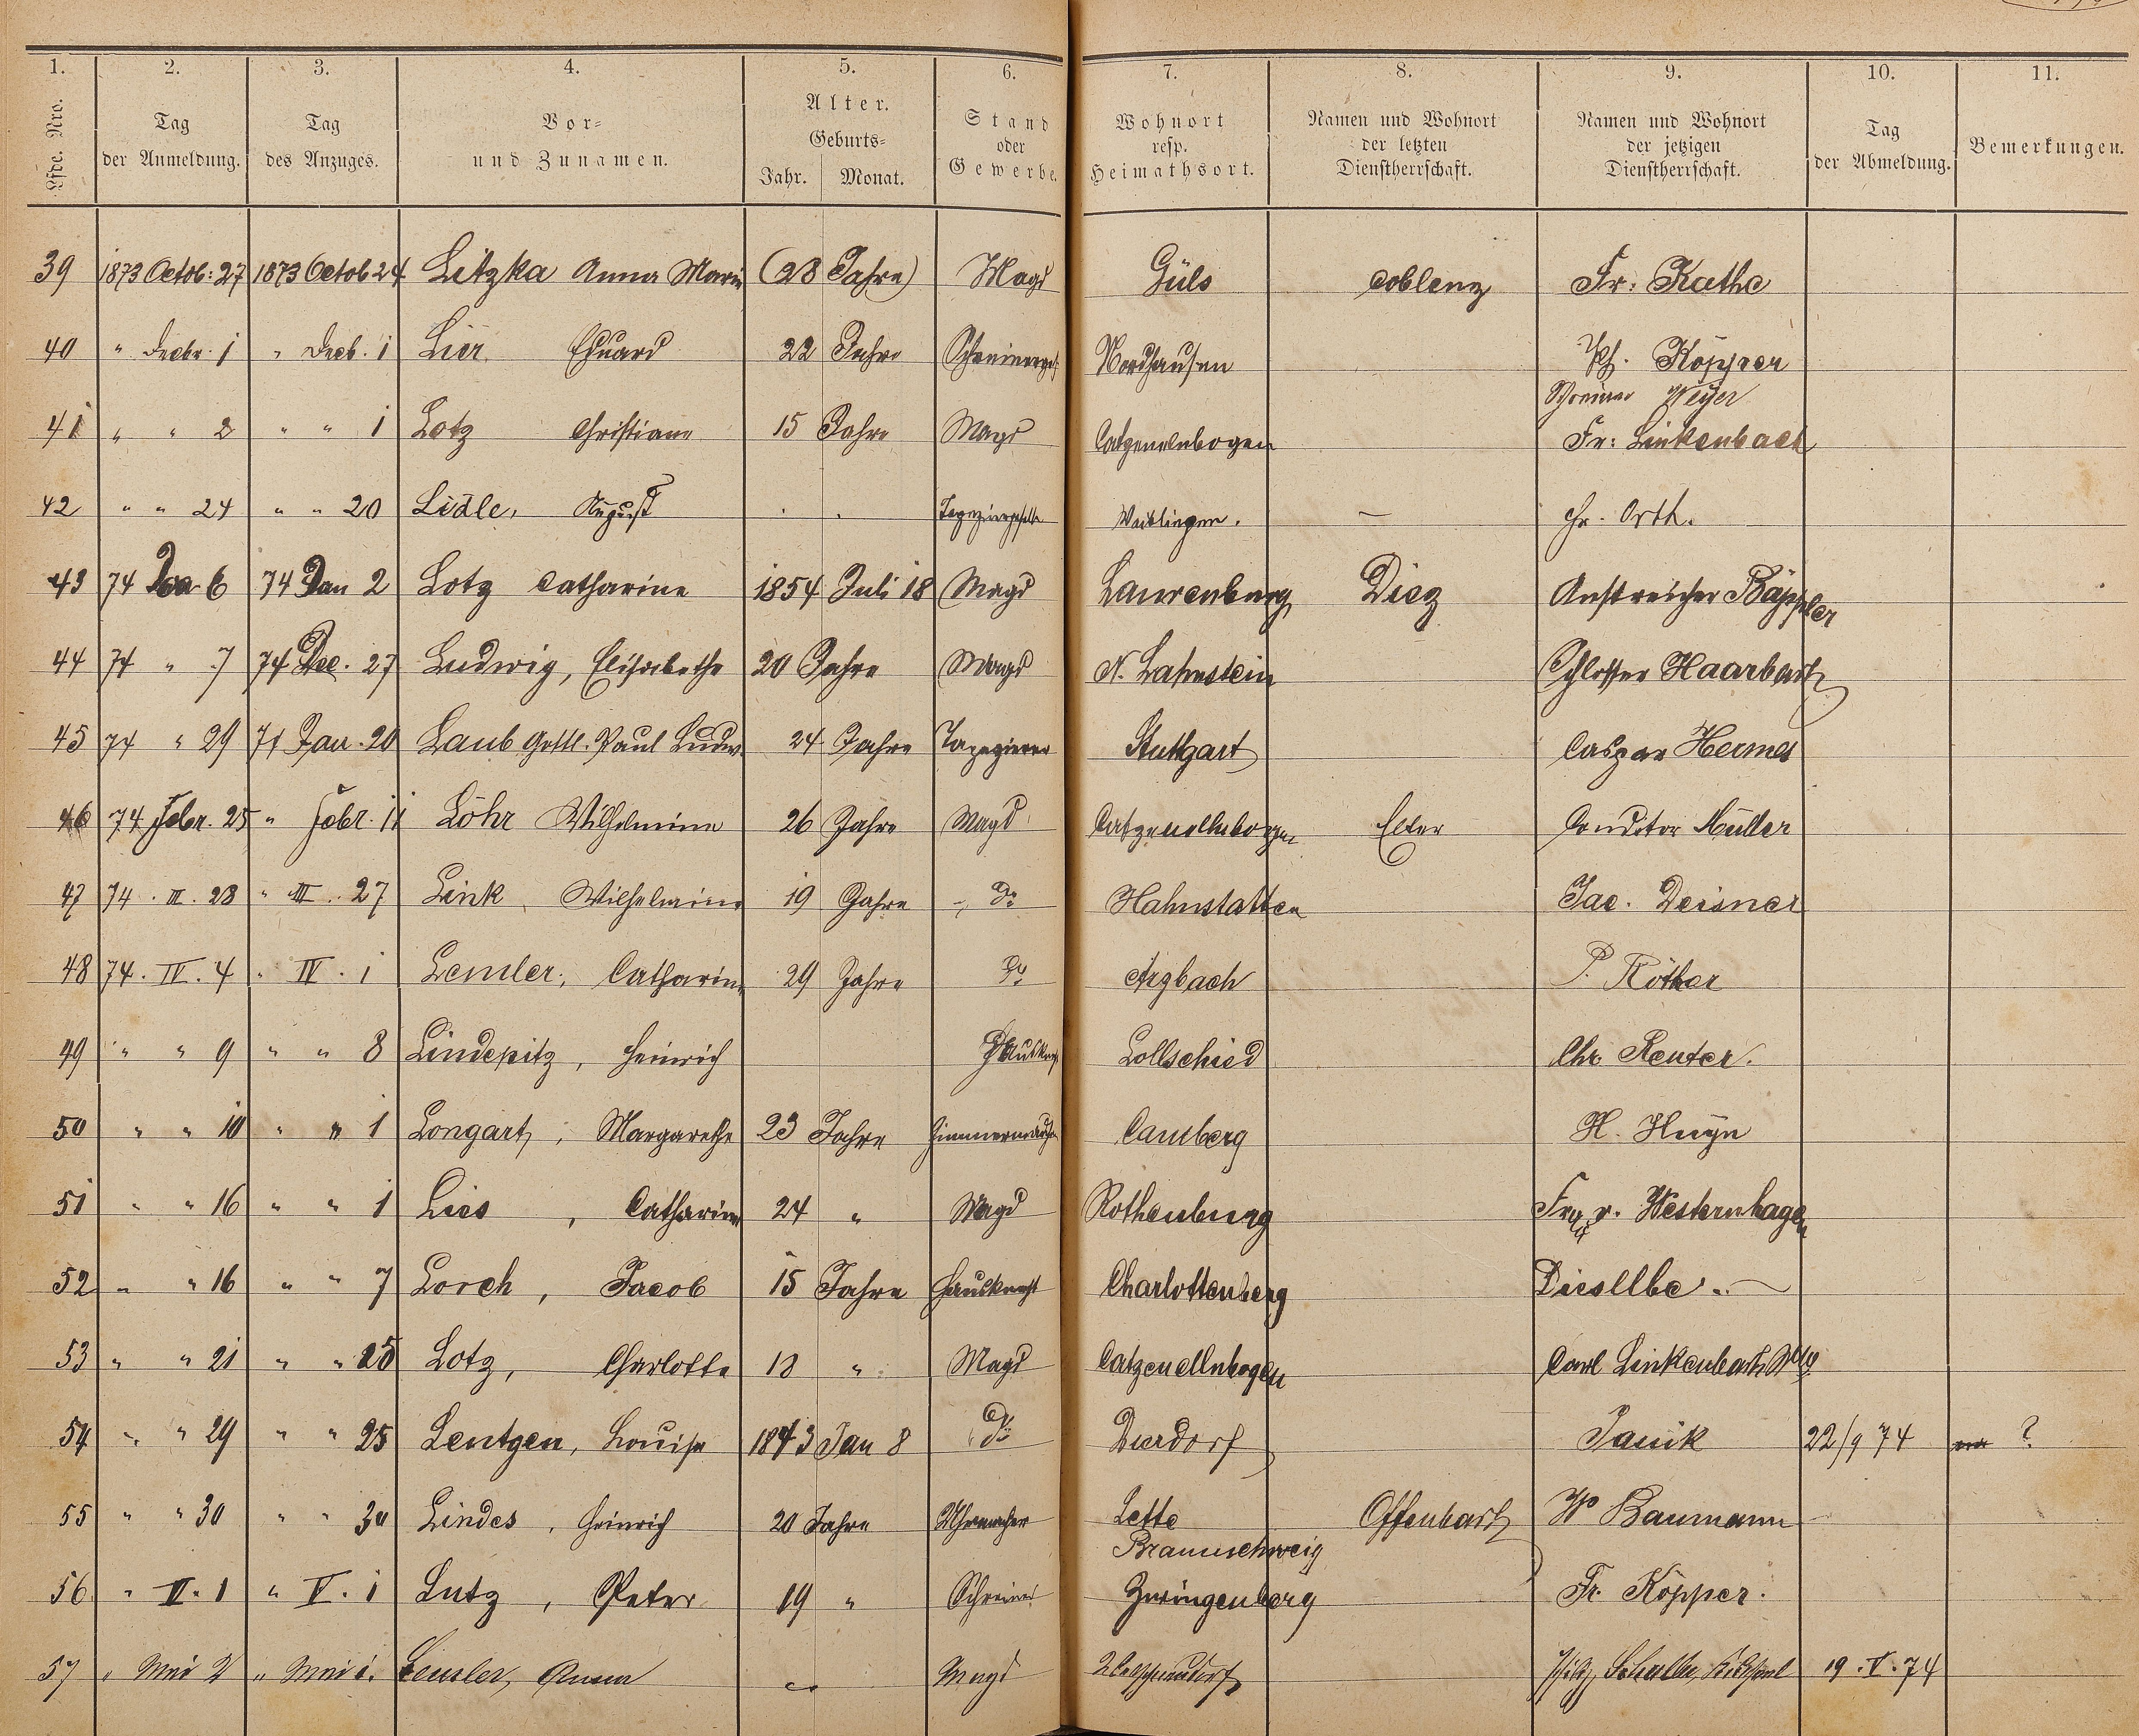 1. 2. 3. 4. 5. 6. 7. 8. 9. 10. 11.
Lfde. Nro. Tag der Anmeldung. Tag des Anzuges. Vor- und Zunamen. Alter. Geburts- Jahr. Monat. Stand oder Gewerbe. Wohnort resp. Heimathsort. Namen und Wohnort der letzten Dienstherrschaft. Namen und Wohnort der jetzigen Dienstherrschaft. Tag der Abmeldung. Bemerkungen.
39 1873 Octob: 27 1873 Octob 24 Litzka Anna Marie (28 Jahre) Magd Güls Coblenz Fr: Kathe
40 " Decbr. 1 " Decb. 1 Lier Eduard 22 Jahre Schreinerges. Nordhausen Ph. Köpper
Schreiner Weyer
41 " " 2 " " 1 Lotz Christiane 15 Jahre Magd Catzenelnbogen Fr: Linkenbach
42 " " 24 " " 20 Lidle, August Tapeziergeselle Waiblingen. — Chr. Orth.
43 74 Jan 6 74 Jan 2 Lotz Catharine 1854 Juli 18 Magd Laurenburg Diez Anstreicher Bäppler
44 74 " 7 74 Dec. 27 Ludwig, Elisabethe 20 Jahre Magd N. Lahnstein Schlosser Haarbach
45 74 " 29 74 Jan. 20 Laub Gottl. Paul Ludw. 24 Jahre Tapezierer Stuttgart Caspar Hermes
46 74 Febr. 25 " Febr. 11 Löhr Wilhelmine 26 Jahre Magd Catzenellnbogen Elter Conditor Müller
47 74 . III. 28 " III. 27 Link, Wilhelmine 19 Jahre " do Hahnstatten Jac. Deisner
48 74. IV. 4 " IV. 1 Lemler, Catharine 29 Jahre do Arzbach P. Röther
49 " " 9 " " 8 Lindepitz, Heinrich Hausknecht Lollschied Chr. Reuter.
50 " " 10 " " 1 Longart, Margarethe 23 Jahre Camberg H. Huyn
51 " " 16 " " 1 Lies, Catharine 24 " Magd Rothenburg Frau v. Westernhagen
52 " " 16 " " 7 Lorch, Jacob 15 Jahre Hausknecht Charlottenberg Diesllbe. —
53 " " 21 " " 25 Lotz, Charlotte 18 " Magd Catzenellnbogen Carl Linkenbach Wwe
54 " " 29 " " 25 Lentgen, Louise 1843 Jan 8 do Dierdorf Janik 22/9 74 ?
55 " " 30 " " 30 Lindes, Heinrich 20 Jahre Uhrmacher Lette Offenbach W Baumann
Braunschweig
56 " V. 1 " V. 1 Lutz, Peter 19 " Schreiner Zwingenberg Fr. Köpper.
57 " Mai 2 " Mai 1. Lemler, Anna Magd 19. V. 74